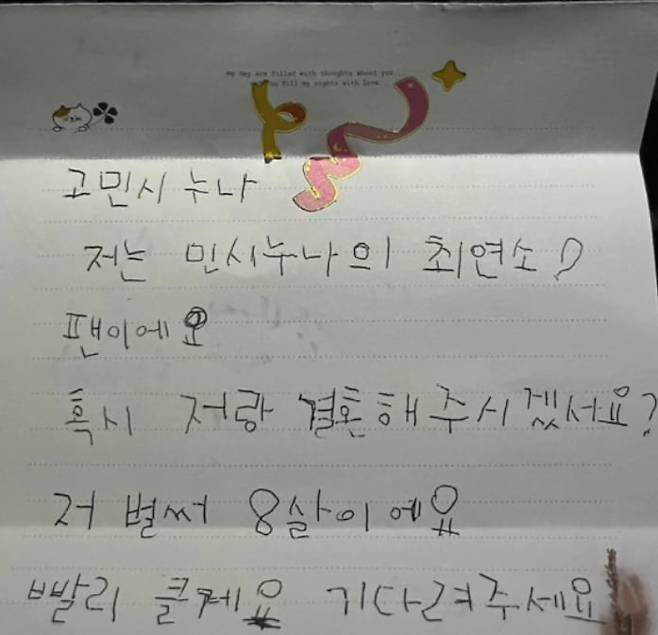 My day are filled with thoughts about you
you fill my nights with love.
고민시 누나
저는 민시누나의 최연소
팬이에요
혹시 저랑 결혼해 주시겠서요?
저 벌써 8살이에요
빨리 클께요 기다려주세요